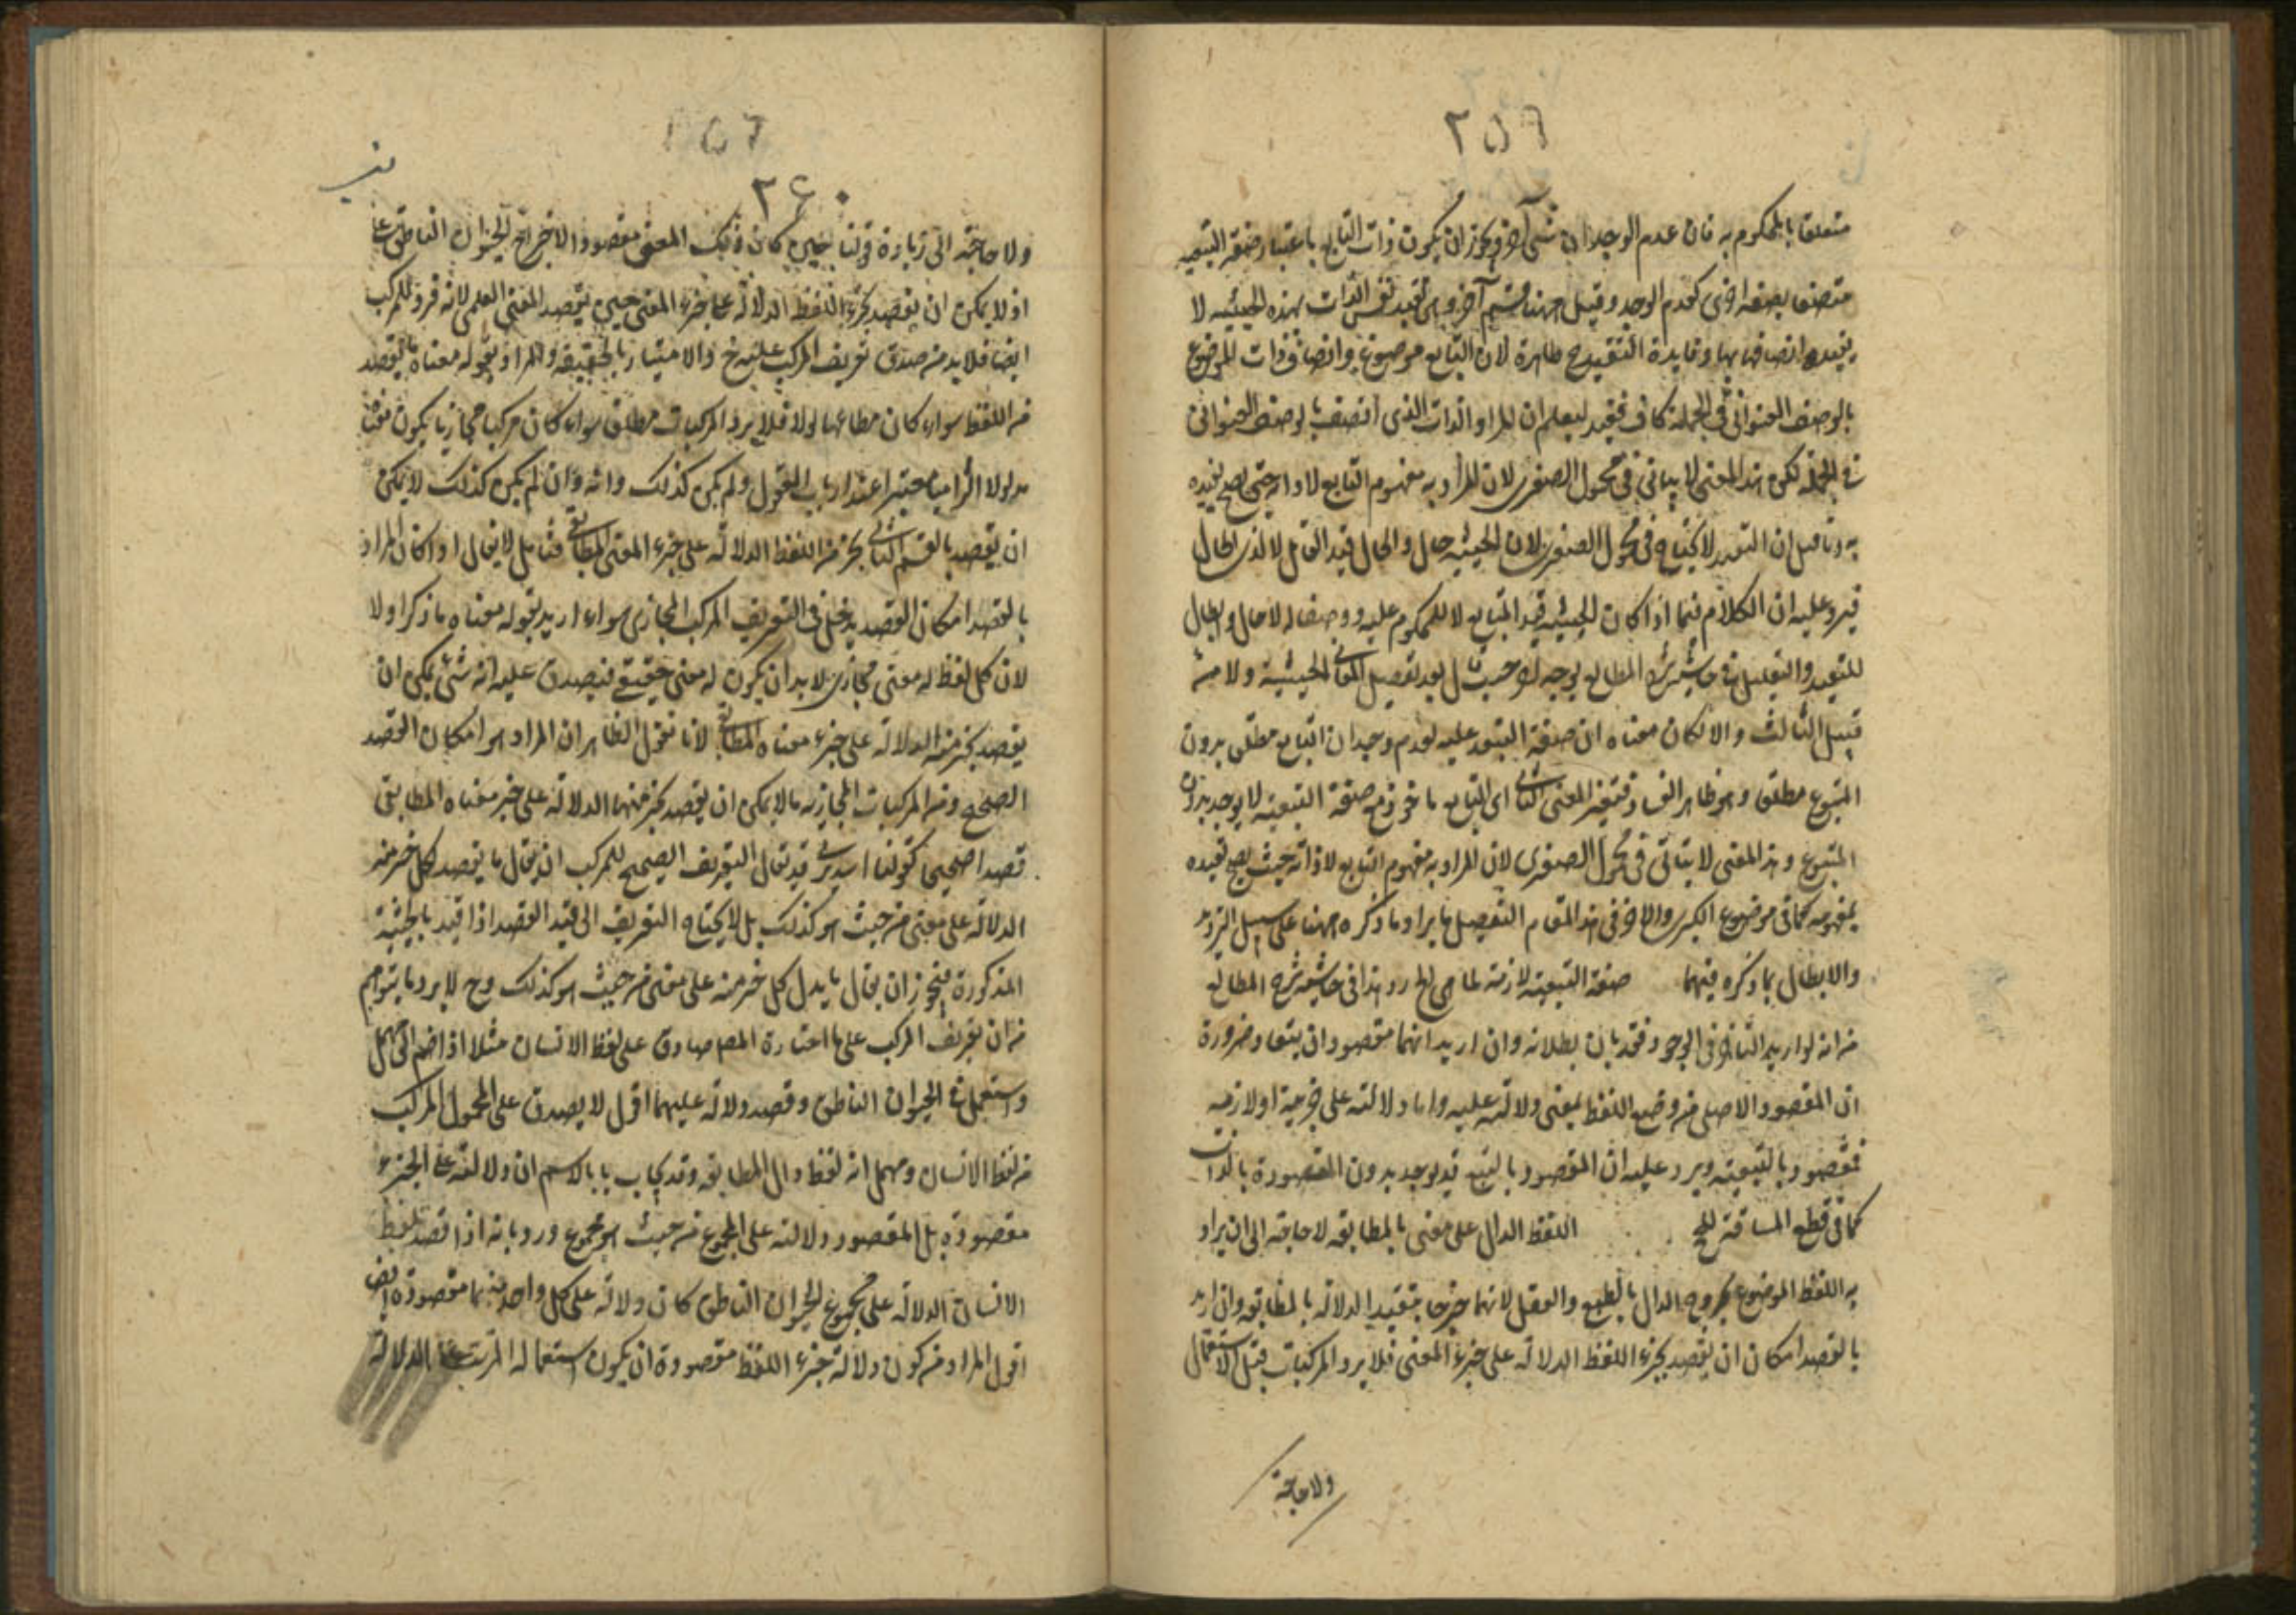 ٢٥٦
متعلقا بالمحكوم به فان عدم الوجدان شئ آخر ويجوز ان يكون ذات التابع باعتبار صفة التبعية
متصفا بصفة اخرى كعدم الوجد وقيل ههنا قسم آخر وهى تقييد نفس الذات بهذه الحيثية لا
بقيد اتصافها بها وفايدة التقييد ح ظاهرة لان التابع موضوع واتصاف ذات الموضوع
بالوصف العنوانى فى الجملة كاف فقيد ليعلم ان المراد الذات الذى اتصف بالوصف العنوانى
فى الجملة لكن هذا المعنى لا يتاتى فى محمول الصغرى لان المراد به مفهوم التابع لا ذاته حتى يصح تقييده
به وما قيل ان التقييد لا يحتاج فى محمول الصغرى لان الحيثية حال والحال قيد العامل لا لذى الحال
فيرد عليه ان الكلام فيما اذا كان الحيثية قيد التابع لا للمحكوم عليه ووصفا له لا حال وابطال
للتقييد والتعليل فى حاشية شرح المطالع بوجه آخر حيث قال بعد تفصيل المعانى الحيثية ولا من
قبيل الثالث والا لكان معناه ان صفة التبعية علية لعدم وجدان التابع مطلق بدون
المتبوع مطلق وهو ظاهر الفساد فتعين المعنى الثانى اى التابع ماخوذ مع صفة التبعية لا يوجد بدون
المتبوع وهذا المعنى لا يتاتى فى محمول الصغرى لان المراد به مفهوم التابع لا ذاته حيث يصح تقييده
بمفهومه كما فى موضوع الكبرى والاخر فى هذا المقام التفصيل بايراد ما ذكره ههنا على سبيل الترديد
والابطال بما ذكره فيهما صفة التبعية لازمة لماهى الخ رد هذا فى حاشية شرح المطالع
من انه لو اريد التأخر فى الوجود فقد بان بطلانه وان اريد انهما مقصودان بتعاد ضرورة
ان المقصود الاصلى من وضع اللفظ لمعنى دلالته عليه واما دلالته على جزئه او لازمه
فمقصود بالتبعية ويرد عليه ان المقصود بالتبع قد يوجد بدون المقصودة بالذات
كما فى قطع المسافة للحج اللفظ الدال على معنى بالمطابقة لا حاجة الى ان يراد
به اللفظ الموضوع بخروج الدال بالطبع والعقل لانهما خرجا بتقييد الدلالة بالمطابقة وان اريد
بالقصد امكان ان يقصد بجزء اللفظ الدلالة على جزء المعنى فلا يرد المركبات قبل الاستعمال
ولا حاجة
٢٥٦
٢٤٠
ولا حاجة الى زيادة قولنا حين كان ذلك المعنى مقصودا لاخراج الحيوان الناطق علما
اذ لا يمكن ان يقصد بجزء اللفظ الدلالة على جزء المعنى حين يقصد المعنى العلمى لانه فرد للمركب
ايضا فلا بد من صدق تعريف المركب عليه ح والامتياز بالحقيقة والمراد بقوله معناه ما يقصد
من اللفظ سواء كان مطابقيا او لا فلا يرد المركبات مطلق سواء كان مركبا مجازيا يكون معناه
مدلولا التزاميا معتبرا عند ارباب العقول ولم يكن كذلك وانه وان لم يكن كذلك لا يمكن
ان يقصد بالقسم الثانى بجزء من اللفظ الدلالة على جزء المعنى المطابقى فتامل لا يقال اذا كان المراد
بالقصد امكان القصد يدخل فى التعريف المركب المجازى سواء اريد بقوله معناه ما ذكر او لا
لان كل لفظ له معنى مجازى لا بد ان يكون له معنى حقيقى فيصدق عليه انه شئ يمكن ان
يقصد بجزء منه الدلالة على جزء معناه المطابقى لانا نقول الظاهر ان المراد هو امكان القصد
الصحيح ومن المركبات المجازية ما لا يمكن ان يقصد بجزء منها الدلالة على جزء معناه المطابقى
قصدا صحيحا كقولنا اسد يرمى قد يقال التعريف الصحيح للمركب ان يقال ما يقصد بكل جزء منه
الدلالة على معنى من حيث هو كذلك بل لا يحتاج التعريف الى قيد القصد اذا قيد بالحيثية
المذكورة فيجوز ان يقال ما يدل كل جزء منه على معنى من حيث هو كذلك وح لا يرد ما يتوهم
من ان تعريف المركب على ما اختاره المص صادق على لفظ الانسان مثلا اذا ضم الى مهمل
واستعمل فى الحيوان الناطق وقصد دلالة عليهما اقول لا يصدق على المحمول المركب
من لفظ الانسان ومهمل انه لفظ دال بالمطابقة وقد يجاب بانا لا نسلم ان دلالته على الجزء
مقصودة بل المقصود دلالته على المجموع من حيث هو مجموع ورد بانه اذا قصد بلفظ
الانسان الدلالة على مجموع الحيوان الناطق كان دلالة على كل واحد منهما مقصودة ايضا
اقول المراد من كون دلالة جزء اللفظ مقصودة ان يكون استعماله المترتب على الدلالة